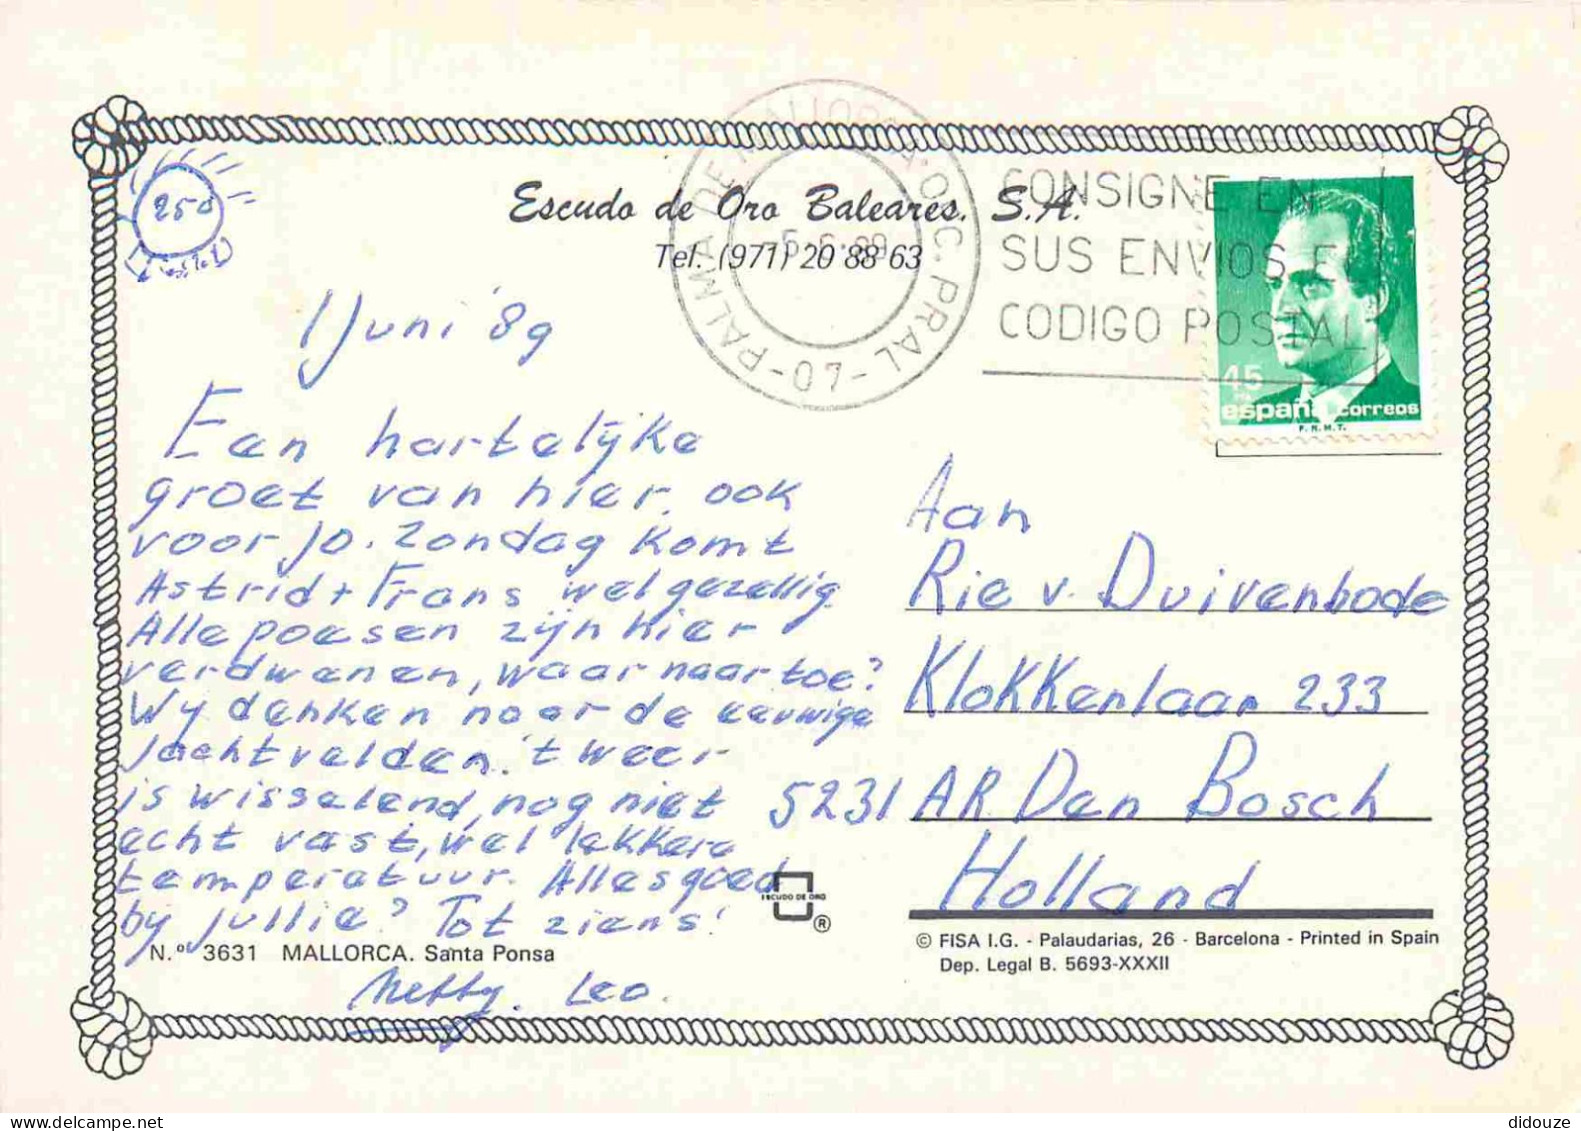 PALMA DE MALLORCA · O.C. PRAL - 07 -
- 5. 6. 89
CONSIGNE EN
SUS ENVIOS EL
CODIGO POSTAL
Escudo de Oro Baleares, S.A.
Tel. (971) 20 88 63
45
PTA
españa correos
F.N.M.T.
25°
1 Juni '89
Een hartelijke
groet van hier, ook
voor Jo. Zondag komt
Astrid + Frans wel gezellig.
Alle poesen zijn hier
verdwenen, waar naar toe?
Wij denken naar de eeuwige
Jachtvelden. 't weer
is wisselend, nog niet
echt vast, wel lekkere
temperatuur. Alles goed
bij jullie? Tot ziens!
Netty. Leo.
Aan
Rie v. Duivenbode
Klokkenlaan 233
5231 AR Den Bosch
Holland
ESCUDO DE ORO
®
N.º 3631 MALLORCA. Santa Ponsa
© FISA I.G. - Palaudarias, 26 - Barcelona - Printed in Spain
Dep. Legal B. 5693-XXXII
didouze